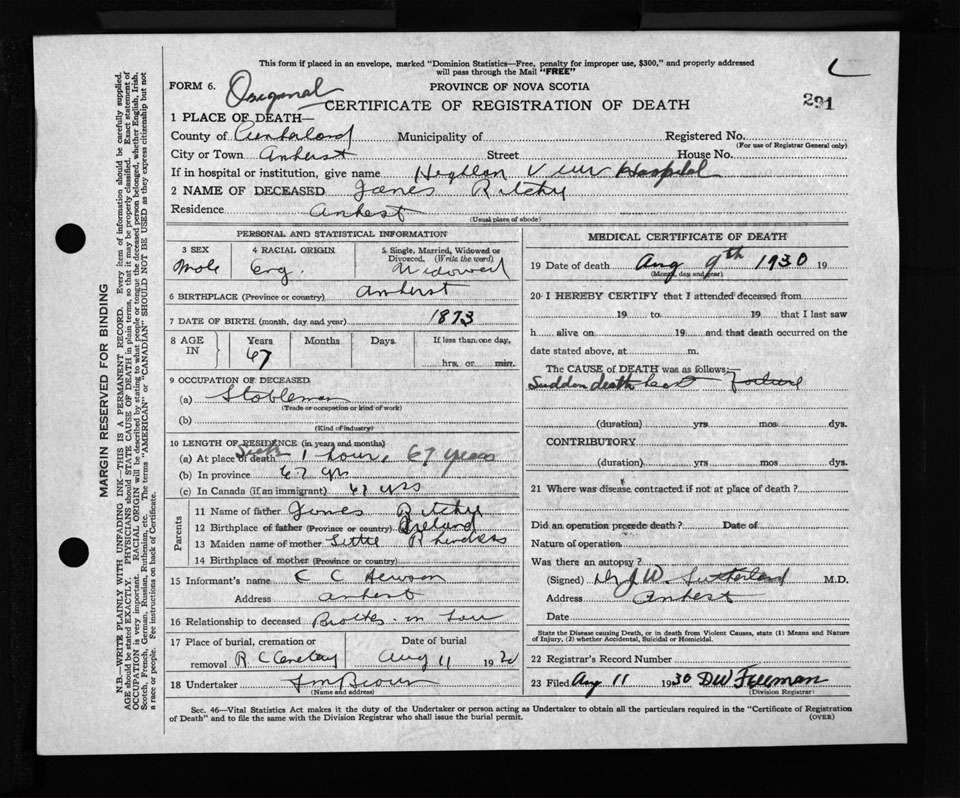 This form if placed in an envelope, marked "Dominion Statistics—Free, penalty for improper use, $300," and properly addressed
will pass through the Mail "FREE"
FORM 6. Original PROVINCE OF NOVA SCOTIA
CERTIFICATE OF REGISTRATION OF DEATH 291
1 PLACE OF DEATH—
County of Cumberland Municipality of Registered No.
(For use of Registrar General only)
City or Town Amherst Street House No.
If in hospital or institution, give name View Hospital
2 NAME OF DECEASED James Ritchy
Residence Amhest
(Usual place of abode)
PERSONAL AND STATISTICAL INFORMATION
3 SEX 4 RACIAL ORIGIN 5 Single, Married, Widowed or Divorced. (Write the word)
Male Eng. Widowed
6 BIRTHPLACE (Province or country) Amherst
7 DATE OF BIRTH (month, day and year) 1873
8 AGE IN Years Months Days If less than one day,
67 hrs. or min.
9 OCCUPATION OF DECEASED
(a) Stableman
(Trade or occupation or kind of work)
(b)
(Kind of industry)
10 LENGTH OF RESIDENCE (in years and months)
(a) At place of death 1 hour, 67 years
(b) In province 67 yrs
(c) In Canada (if an immigrant) 67 yrs
Parents
11 Name of father James Ritchy
12 Birthplace of father (Province or country) Ireland
13 Maiden name of mother
14 Birthplace of mother (Province or country)
15 Informant's name C C Hewson
Address Amherst
16 Relationship to deceased Brother-in Law
17 Place of burial, cremation or removal R. C Cemetery Date of burial Aug 11 1930
18 Undertaker Brown
(Name and address)
MEDICAL CERTIFICATE OF DEATH
19 Date of death Aug 9th 1930 19
(Month, day and year)
20 I HEREBY CERTIFY that I attended deceased from
19 to 19 that I last saw
h alive on 19 and that death occurred on
date stated above, at m.
The CAUSE of DEATH was as follows:—
Sudden death heart failure
(duration) yrs mos dys.
CONTRIBUTORY
(duration) yrs mos dys.
21 Where was disease contracted if not at place of death?
Did an operation precede death? Date of
Nature of operation
Was there an autopsy?
(Signed) W. Sutherland M.D.
Address Amherst
Date
State the Disease causing Death, or in death from Violent Causes, state (1) Means and Nature
of Injury, (2) whether Accidental, Suicidal or Homicidal.
22 Registrar's Record Number
23 Filed Aug 11 1930 DW Freeman
(Division Registrar)
Sec. 46—Vital Statistics Act makes it the duty of the Undertaker or person acting as Undertaker to obtain all the particulars required in the "Certificate of Registration
of Death" and to file the same with the Division Registrar who shall issue the burial permit. (OVER)
MARGIN RESERVED FOR BINDING
N.B.—WRITE PLAINLY WITH UNFADING INK—THIS IS A PERMANENT RECORD. Every item of information should be carefully supplied.
AGE should be stated EXACTLY. PHYSICIANS should STATE CAUSE OF DEATH in plain terms, so that it may be properly classified. Exact statement of
OCCUPATION is very important. RACIAL ORIGIN will be described by stating to what people or tongue the deceased person belonged, whether English, Irish,
Scotch, French, German, Russian, Ruthenian, etc. The terms "AMERICAN" or "CANADIAN" SHOULD NOT BE USED as they express citizenship but not
a race or people. Fee instructions on back of Certificate.